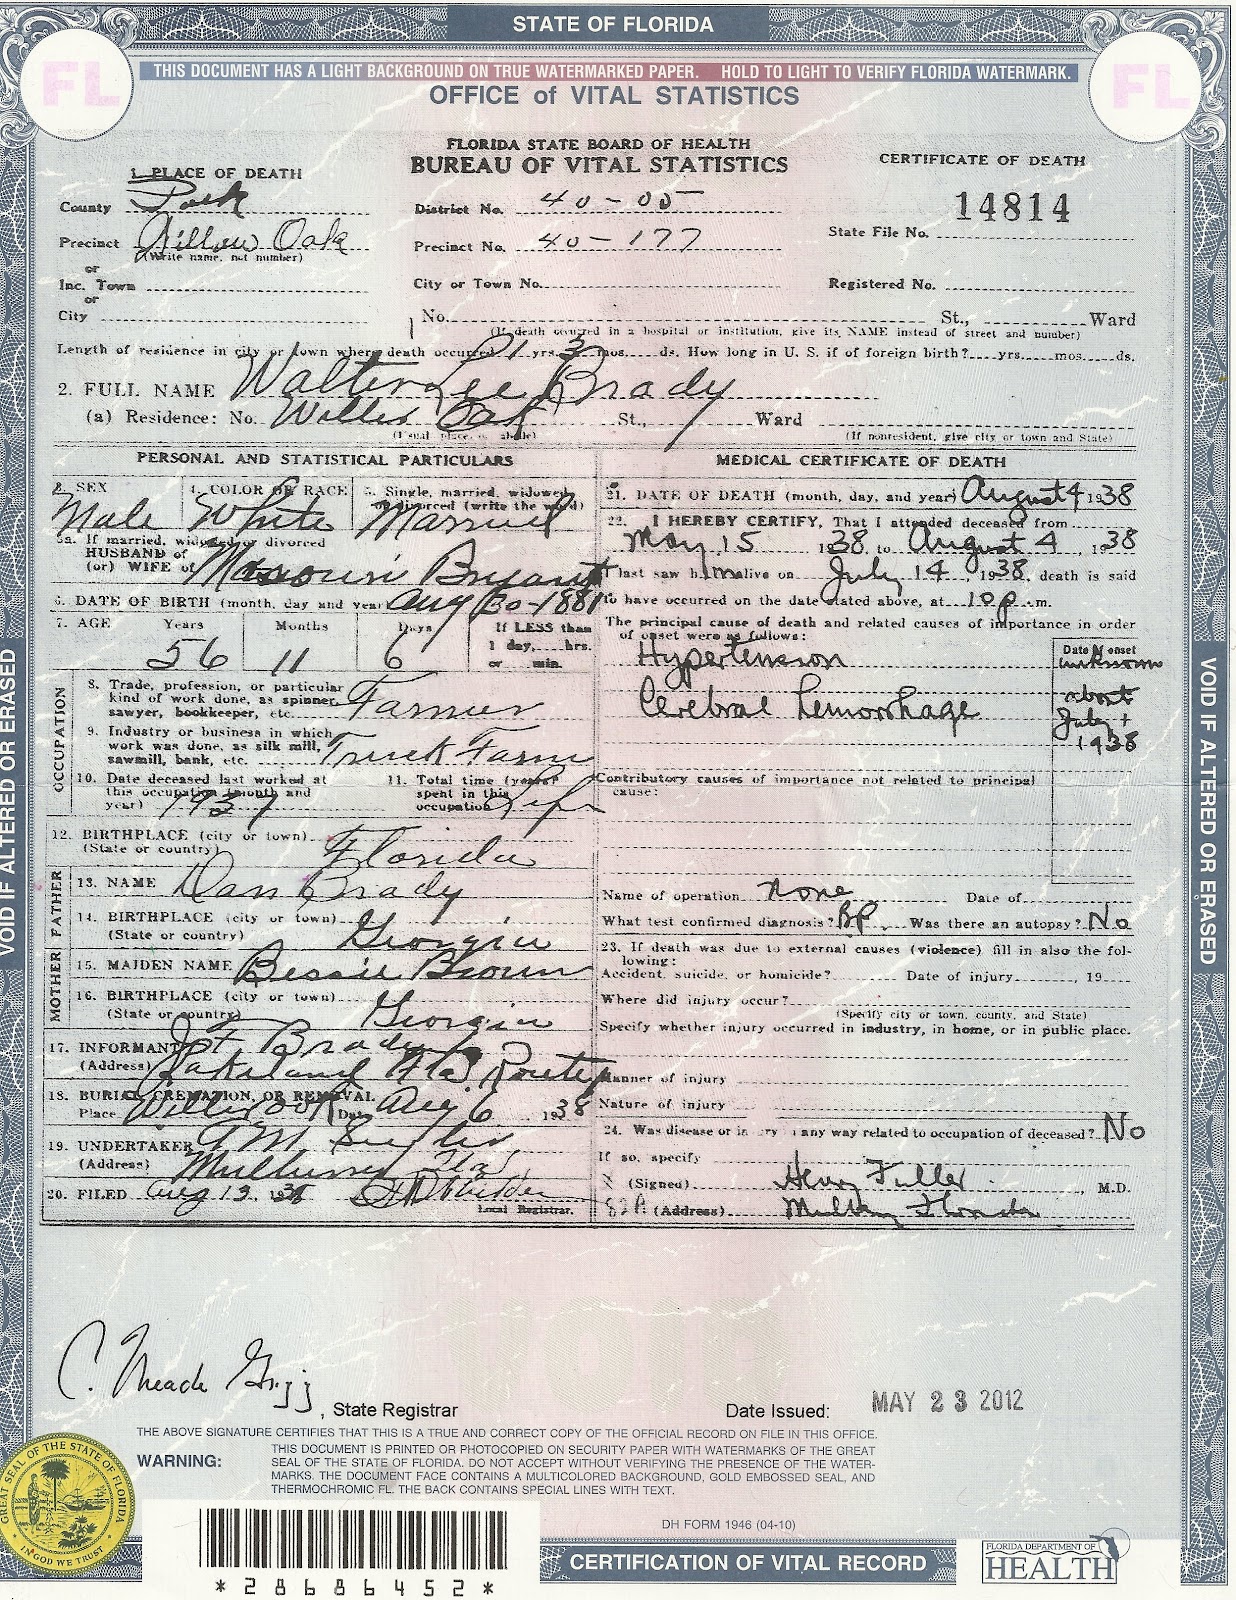 STATE OF FLORIDA
THIS DOCUMENT HAS A LIGHT BACKGROUND ON TRUE WATERMARKED PAPER. HOLD TO LIGHT TO VERIFY FLORIDA WATERMARK.
FL
FL
OFFICE of VITAL STATISTICS
FLORIDA STATE BOARD OF HEALTH
BUREAU OF VITAL STATISTICS
CERTIFICATE OF DEATH
1. PLACE OF DEATH
County Polk
District No. 40-05
14814
State File No.
Precinct Willow Oak
Precinct No. 40-177
(Write name, not number)
or
Inc. Town
City or Town No.
Registered No.
or
City
No. St., Ward
(If death occurred in a hospital or institution, give its NAME instead of street and number)
Length of residence in city or town where death occurred 1 yrs. 3 mos. ds. How long in U. S. if of foreign birth? yrs. mos. ds.
2. FULL NAME Walter Lee Brady
(a) Residence: No. Willow Oak St., Ward
(Usual place of abode) (If nonresident, give city or town and State)
PERSONAL AND STATISTICAL PARTICULARS
3. SEX Male
4. COLOR OR RACE White
5. Single, married, widowed or divorced (write the word) Married
5a. If married, widowed or divorced
HUSBAND of
(or) WIFE of Missouri Bryant
6. DATE OF BIRTH (month, day and year) Aug 30-1881
7. AGE Years 56 Months 11 Days 6 If LESS than
1 day, hrs.
or min.
OCCUPATION
8. Trade, profession, or particular
kind of work done, as spinner,
sawyer, bookkeeper, etc. Farmer
9. Industry or business in which
work was done, as silk mill,
sawmill, bank, etc. Truck Farm
10. Date deceased last worked at
this occupation (month and
year) 1937
11. Total time (years)
spent in this
occupation Life
12. BIRTHPLACE (city or town)
(State or country) Florida
FATHER
13. NAME Dan Brady
14. BIRTHPLACE (city or town)
(State or country) Georgia
MOTHER
15. MAIDEN NAME Bessie Brown
16. BIRTHPLACE (city or town)
(State or country) Georgia
17. INFORMANT Brady
(Address) Lakeland Fla Route
18. BURIAL, CREMATION, OR REMOVAL
Place Willow Oak Date Aug 6 1938
19. UNDERTAKER
(Address) Mulberry Fla
20. FILED Aug 13, 1938
Local Registrar.
MEDICAL CERTIFICATE OF DEATH
21. DATE OF DEATH (month, day, and year) August 4 1938
22. I HEREBY CERTIFY, That I attended deceased from
May 15 1938 to August 4, 1938
I last saw him alive on July 14, 1938, death is said
to have occurred on the date stated above, at 10 p.m.
The principal cause of death and related causes of importance in order
of onset were as follows:
Date of onset
Hypertension unknown
Cerebral hemorrhage about
July 1
1938
Contributory causes of importance not related to principal
cause:
Name of operation none Date of
What test confirmed diagnosis? BP Was there an autopsy? No
23. If death was due to external causes (violence) fill in also the fol-
lowing:
Accident, suicide, or homicide? Date of injury , 19
Where did injury occur?
(Specify city or town, county, and State)
Specify whether injury occurred in industry, in home, or in public place.
Manner of injury
Nature of injury
24. Was disease or injury in any way related to occupation of deceased? No
If so, specify
(Signed) Henry Fuller, M.D.
82A (Address) Mulberry Florida
VOID IF ALTERED OR ERASED
VOID IF ALTERED OR ERASED
C. Meade Grigg, State Registrar
Date Issued: MAY 23 2012
THE ABOVE SIGNATURE CERTIFIES THAT THIS IS A TRUE AND CORRECT COPY OF THE OFFICIAL RECORD ON FILE IN THIS OFFICE.
WARNING:
THIS DOCUMENT IS PRINTED OR PHOTOCOPIED ON SECURITY PAPER WITH WATERMARKS OF THE GREAT
SEAL OF THE STATE OF FLORIDA. DO NOT ACCEPT WITHOUT VERIFYING THE PRESENCE OF THE WATER-
MARKS. THE DOCUMENT FACE CONTAINS A MULTICOLORED BACKGROUND, GOLD EMBOSSED SEAL, AND
THERMOCHROMIC FL. THE BACK CONTAINS SPECIAL LINES WITH TEXT.
GREAT SEAL OF THE STATE OF FLORIDA
IN GOD WE TRUST
DH FORM 1946 (04-10)
CERTIFICATION OF VITAL RECORD
FLORIDA DEPARTMENT OF
HEALTH
*28686452*